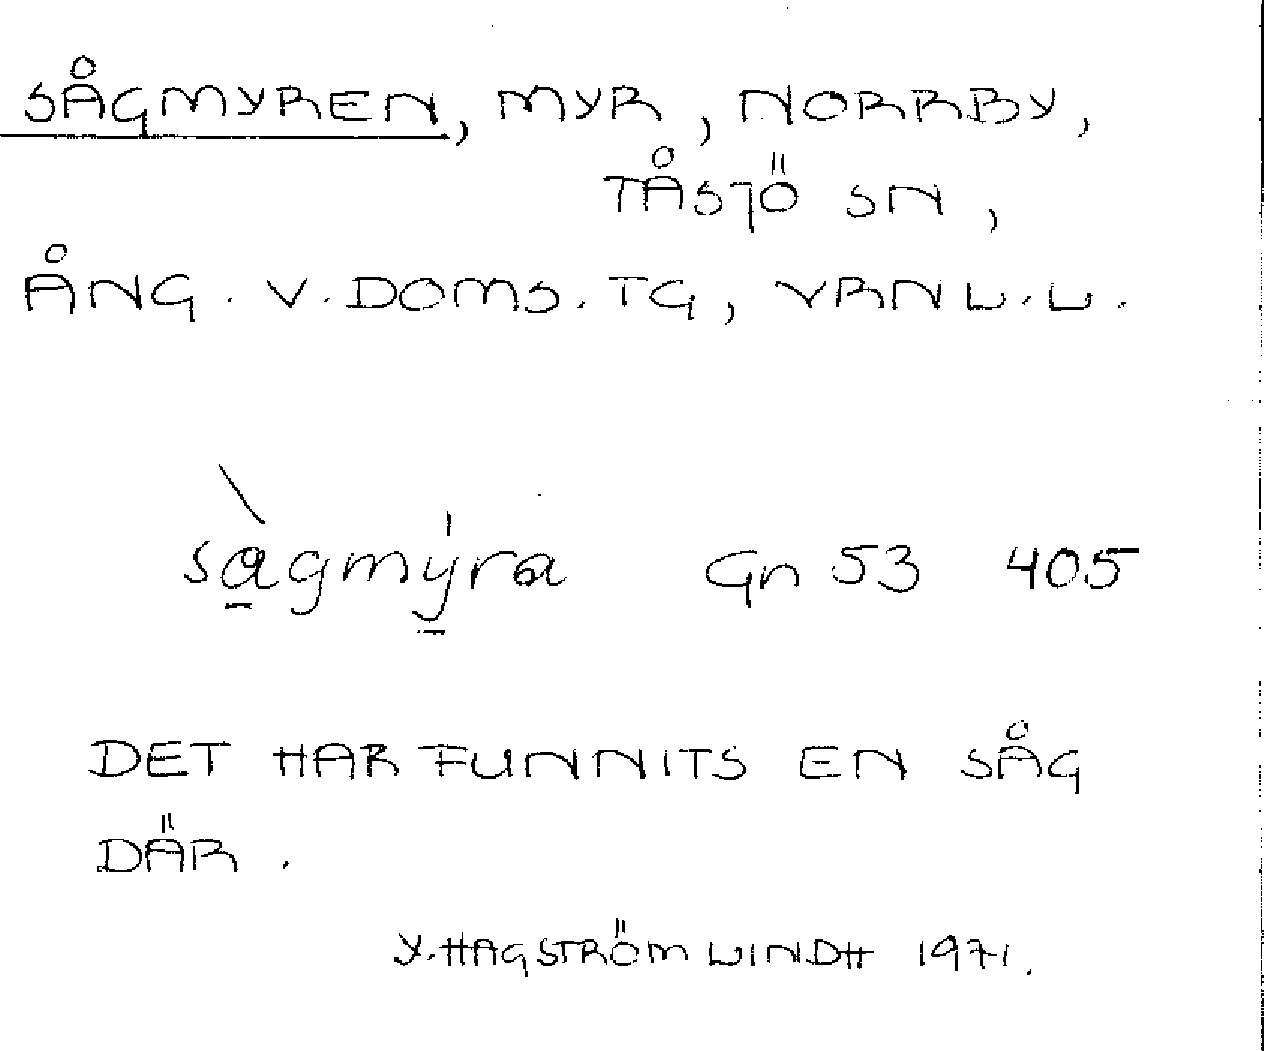 SÅGMYREN, MYR, NORRBY,
TÅSJÖ SN,
ÅNG. V. DOMS. TG, VRNL.L.
sàgmýra Gn 53 405
DET HAR FUNNITS EN SÅG
DÄR.
Y. HAGSTRÖM LINDH 1971.